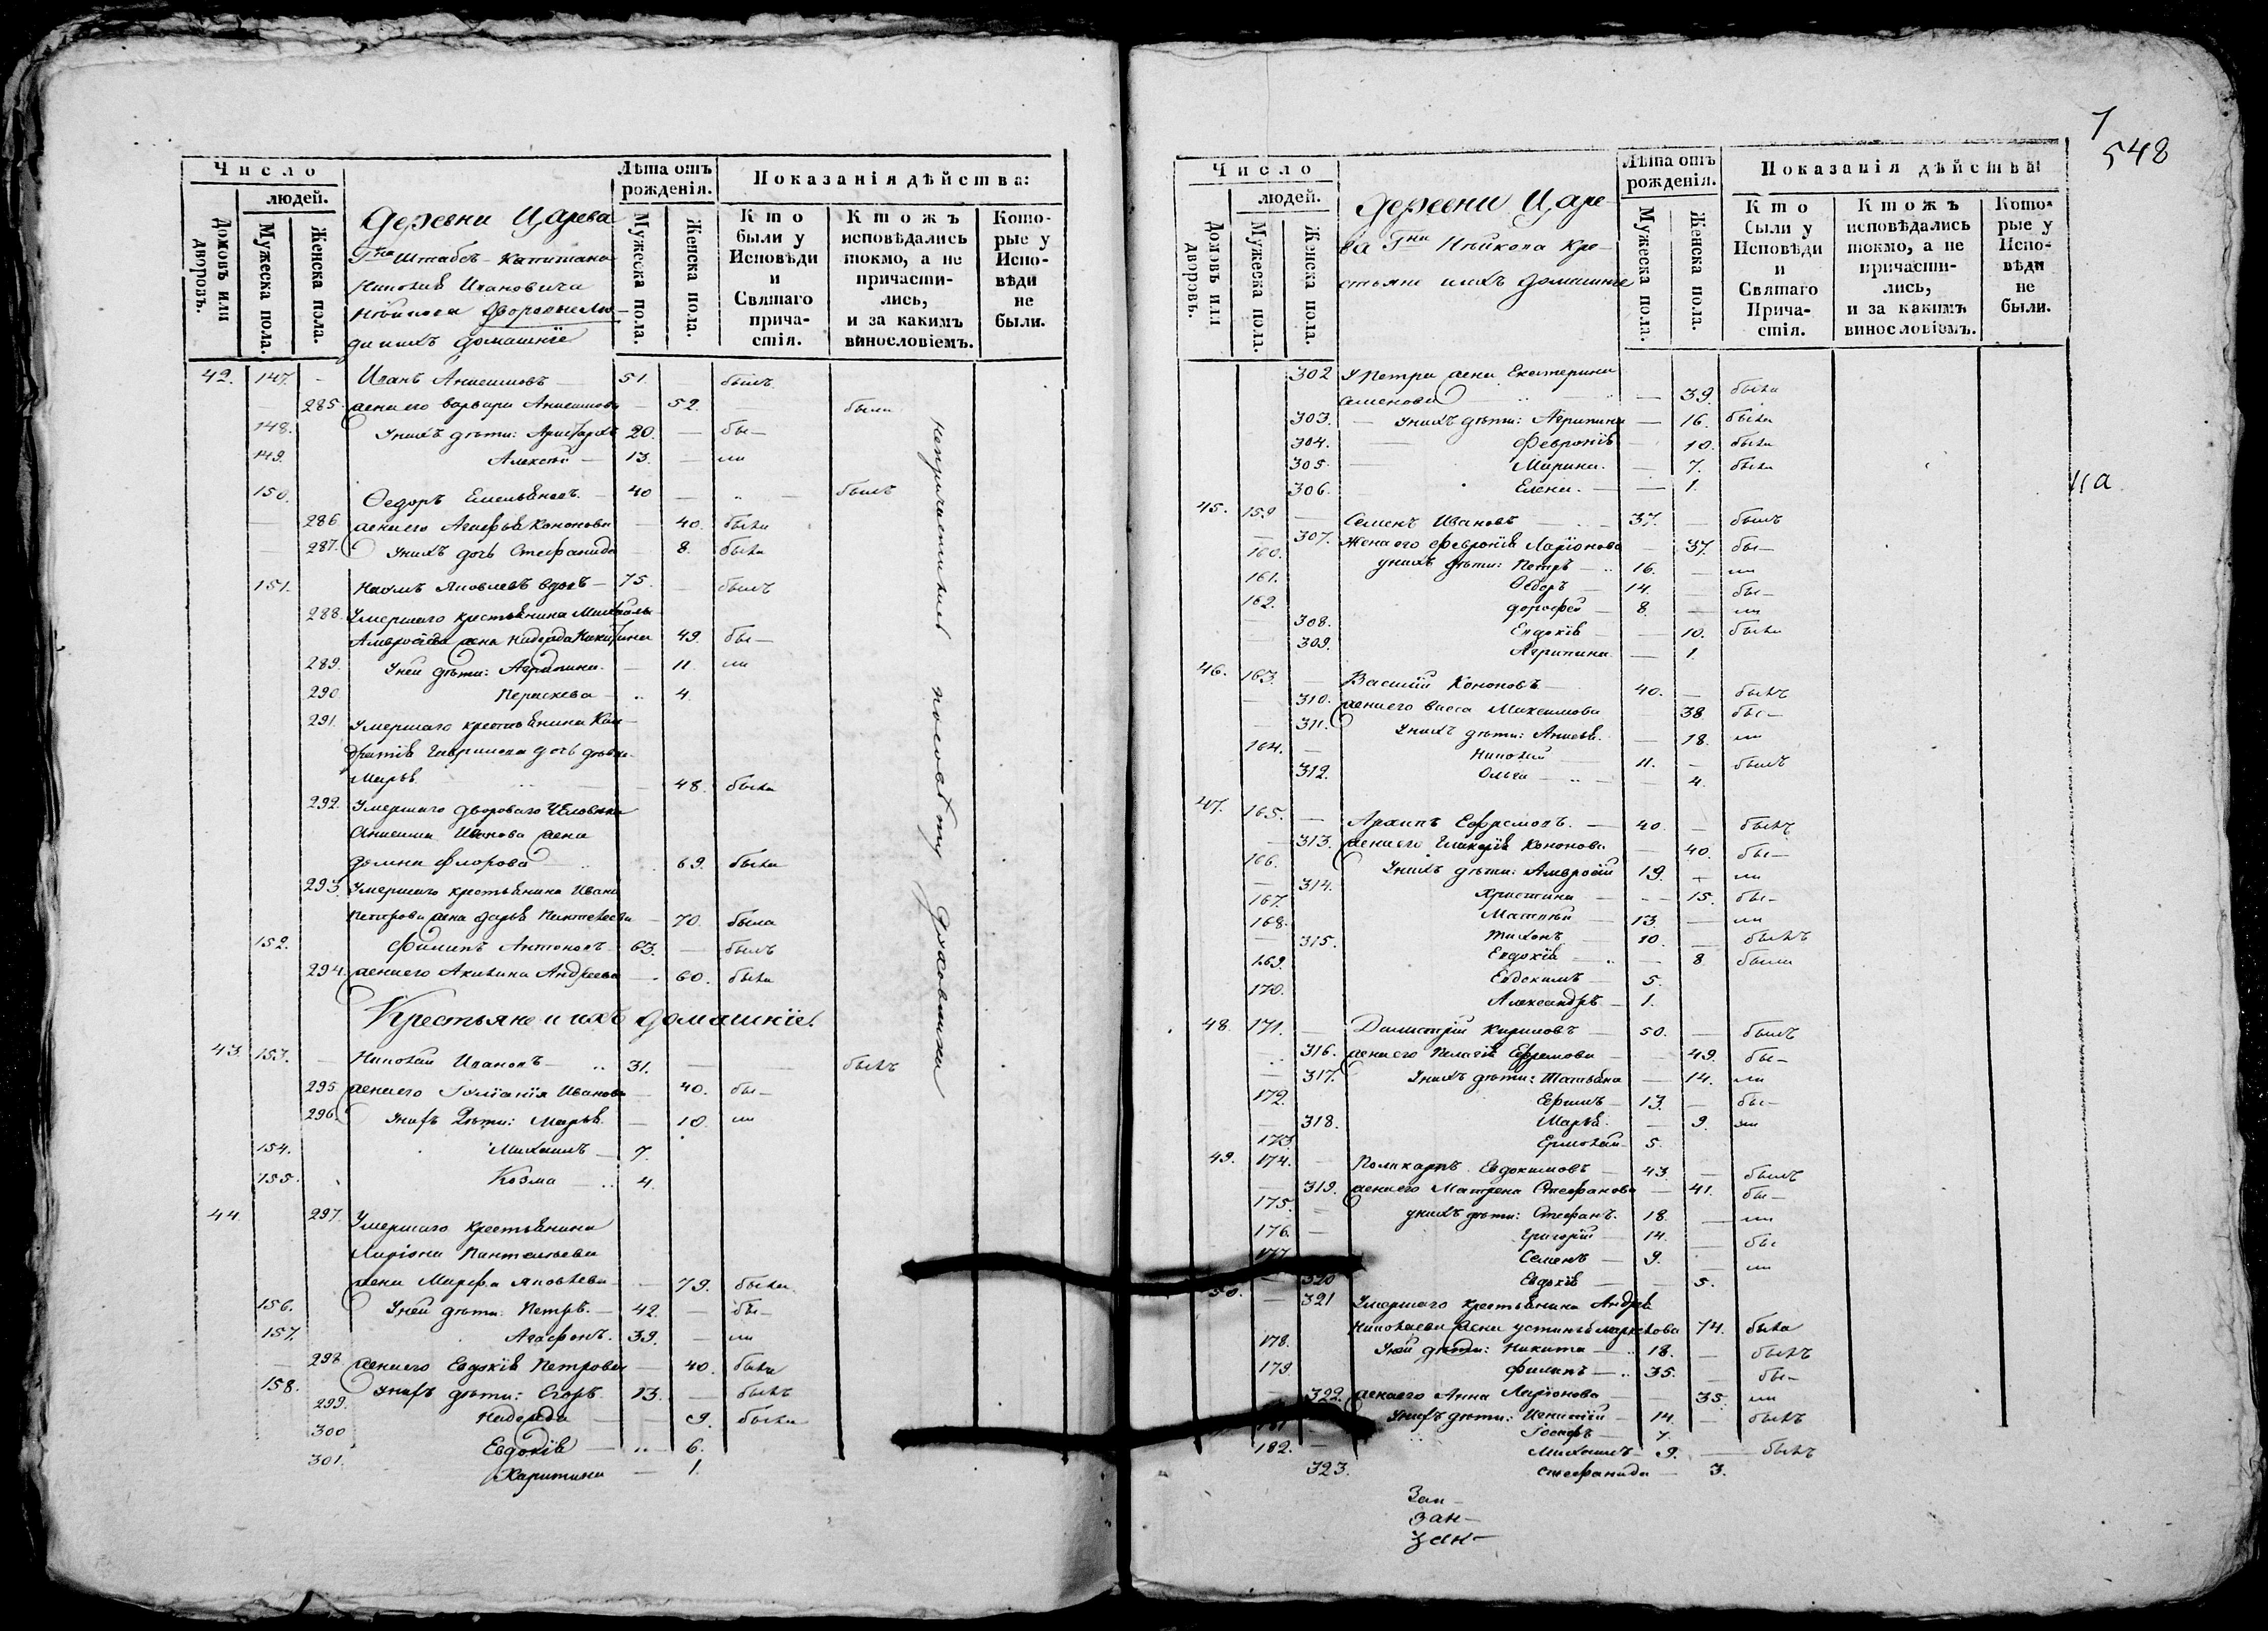 Число
людей.
Домовъ или дворовъ.
Мужеска пола.
Женска пола.
Деревни Царева
Гна Штабсъ-Капитана
Николая Ивановича
Дворовые Лю-
ди и ихъ домашніе
Лѣта отъ рожденія.
Мужеска пола.
Женска пола.
Показанія дѣйства:
Кто были у Исповѣди и Святаго причастія.
Ктожъ исповѣдались токмо, а не причастились, и за какимъ винословіемъ.
Которые у Исповѣди не были.
42. 147. - Иванъ Анисимовъ — 51. — былъ
— 285. жена его Варвара Анисимова — 52. — была
148. У нихъ дѣти: Аристархъ 20. — бы-
149. Алексѣй — 13. — ли
150. Ѳедоръ Емельяновъ — 40 — „ — былъ
— 286 жена его Агафья Кононова — 40. была
— 287. У нихъ дочь Стефанида — 8. была
151. Наумъ Яковлевъ вдовъ — 75. — былъ
288. Умершаго крестьянина Михайлы
Амвросіева жена Надежда Никитина 49. бы-
289. У ней дѣти: Агрипина — 11 ли
290 Параскева — „ 4.
291. Умершаго крестьянина Кон-
дратія Гаврилова дочь дѣвка
Марья — 48. была
292. Умершаго двороваго Человѣка
Анисима Иванова жена
Домна Флорова — 69. была
293. Умершаго крестьянина Ивана
Петрова жена Дарья Пантелеева — 70. была
152. Филипъ Антоновъ — 63. — былъ
294. жена его Акилина Андреева — 60. была
Крестьяне и ихъ домашніе.
43 153. — Николай Ивановъ — „ 31. — былъ
295 жена его Іуліанія Иванова — 40. бы-
296. У нихъ Дѣти: Марья — 10. ли
154. Михаилъ — 7.
155. Козма — „ 4.
44. 297. Умершаго Крестьянина
Ларіона Пантелѣева
жена Марфа Яковлева — 79. была
156. У ней дѣти: Петръ — 42. — бы-
157. Агафонъ. 39. — ли
— 298. жена его Евдокія Петрова — 40. была
158. У нихъ дѣти: Егоръ 13. — былъ
299. Надежда — 9. была
300 Евдокія — „ 6.
301. Харитина — 1.
духовника
548
Число
людей.
Домовъ или дворовъ.
Мужеска пола.
Женска пола.
Деревни Царе-
ва Гна Кре-
стьяне и ихъ домашніе
Лѣта отъ рожденія.
Мужеска пола.
Женска пола.
Показанія дѣйства:
Кто были у Исповѣди и Святаго Причастія.
Ктожъ исповѣдались токмо, а не причастились, и за какимъ винословіемъ.
Которые у Исповѣди не были.
302 У Петра жена Екатерина
Семенова „ „ — 39. была
303. — У нихъ дѣти: Агрипина — 16. была
304. — Февронія — 10. была
305. — Марина. — 7. была
306. Елена. — 1.
45. 159 — Семенъ Ивановъ — 37. — былъ
— 307. Жена его Февронія Ларіонова — 37. бы-
160. У нихъ дѣти: Петръ — „ 16. — ли
161. Ѳедоръ — 14. — бы-
162. Дорофей — 8. — ли
— 308. Евдокія — 10. была
— 309. Агрипина — 1.
46. 163. — Василій Кононовъ — 40. — былъ
— 310. жена его Васса Максимова — 38. бы-
— 311. У нихъ дѣти: Анисья. — 18. ли
164. — Николай — 11. — былъ
312. Ольга — „ — 4.
47. 165. — Архипъ Ефремовъ. — 40. — былъ
— 313. жена его Гликерія Кононова — 40. бы-
166. У нихъ дѣти: Амвросій 19. — ли
— 314. Христина — 15. бы-
167. Матвѣй — 13. — ли
168. Тихонъ — 10. — былъ
— 315. Евдокія — „ — 8. была
169. Евдокимъ — 5.
170. Александръ — 1.
48. 171. — Димитрій Кириловъ — 50. — былъ
„ 316. жена его Пелагія Ефремова — 49. бы-
— 317. У нихъ дѣти: Татьяна — 14. ли
172. Ефимъ — 13. — бы-
— 318. Марья. — 9. ли
173. Ермолай — 5.
49. 174. — Поликарпъ Евдокимовъ — 43. — былъ
— 319. жена его Матрена Стефанова — 41. бы-
175. — У нихъ дѣти: Стефанъ. 18. — ли
176. — Григорій — 14. — бы
177. Семенъ — 9. — ли
— 320 Евдокія — 5.
50. — 321 Умершаго крестьянина Андрея
Николаева жена Устинья Маркелова 74. была
178. У ней дѣти: Никита — „ 18. — былъ
179. Филипъ — „ 35. — бы-
— 322. жена его Анна Ларіонова — 35. ли
У нихъ дѣти: Игнатій — 14. — былъ
181 Іосифъ — 7.
182. — Михаилъ — 9. — былъ
323. Стефанида — 3.